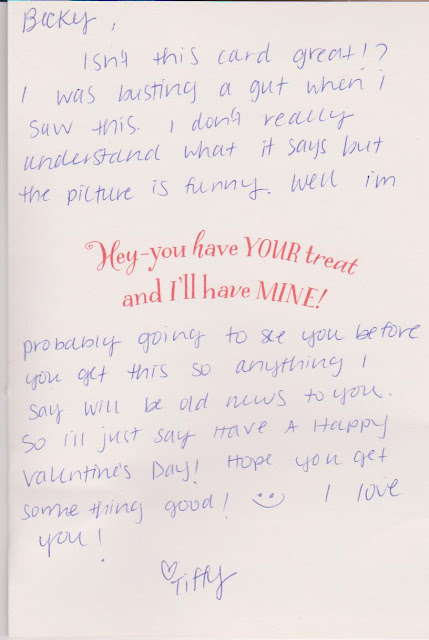 Becky,
Isn't this card great!?
I was busting a gut when i
saw this. I don't really
understand what it says but
the picture is funny. Well im
Hey-you have YOUR treat
and I'll have MINE!
probably going to see you before
you get this so anything I
say will be old news to you.
So i'll just say Have A Happy
Valentine's Day! Hope you get
something good! I love
you!
Tiffy